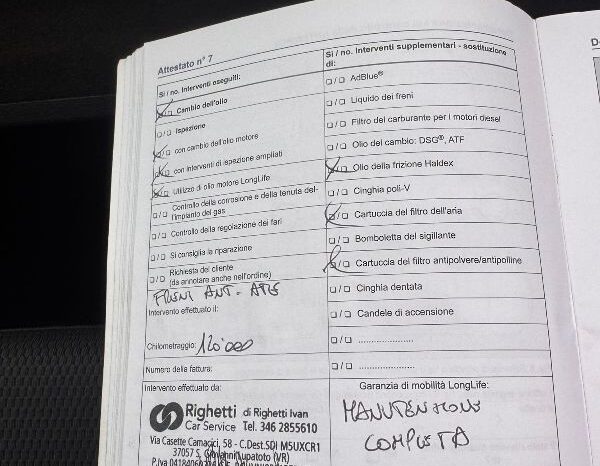 Attestato n° 7
Si / no. Interventi eseguiti:
Cambio dell'olio
Ispezione
con cambio dell'olio motore
con interventi di ispezione ampliati
Utilizzo di olio motore LongLife
Controllo della corrosione e della tenuta del-
l'impianto del gas
Controllo della regolazione dei fari
Si consiglia la riparazione
Richiesta del cliente
(da annotare anche nell'ordine)
FRENI ANT.
Intervento effettuato il:
Chilometraggio: 120'000
Numero della fattura:
Intervento effettuato da:
Righetti di Righetti Ivan
Car Service Tel. 346 2855610
Via Casette Camacici, 58 - C.Dest.SDI M5UXCR1
37057 S. Giovanni Lupatoto (VR)
P.Iva
Si / no. Interventi supplementari - sostituzione
di:
AdBlue®
Liquido dei freni
Filtro del carburante per i motori diesel
Olio del cambio: DSG®, ATF
Olio della frizione Haldex
Cinghia poli-V
Cartuccia del filtro dell'aria
Bomboletta del sigillante
Cartuccia del filtro antipolvere/antipolline
Cinghia dentata
Candele di accensione
....................
....................
Garanzia di mobilità LongLife:
MANUTENZIONE
COMPLETA
D